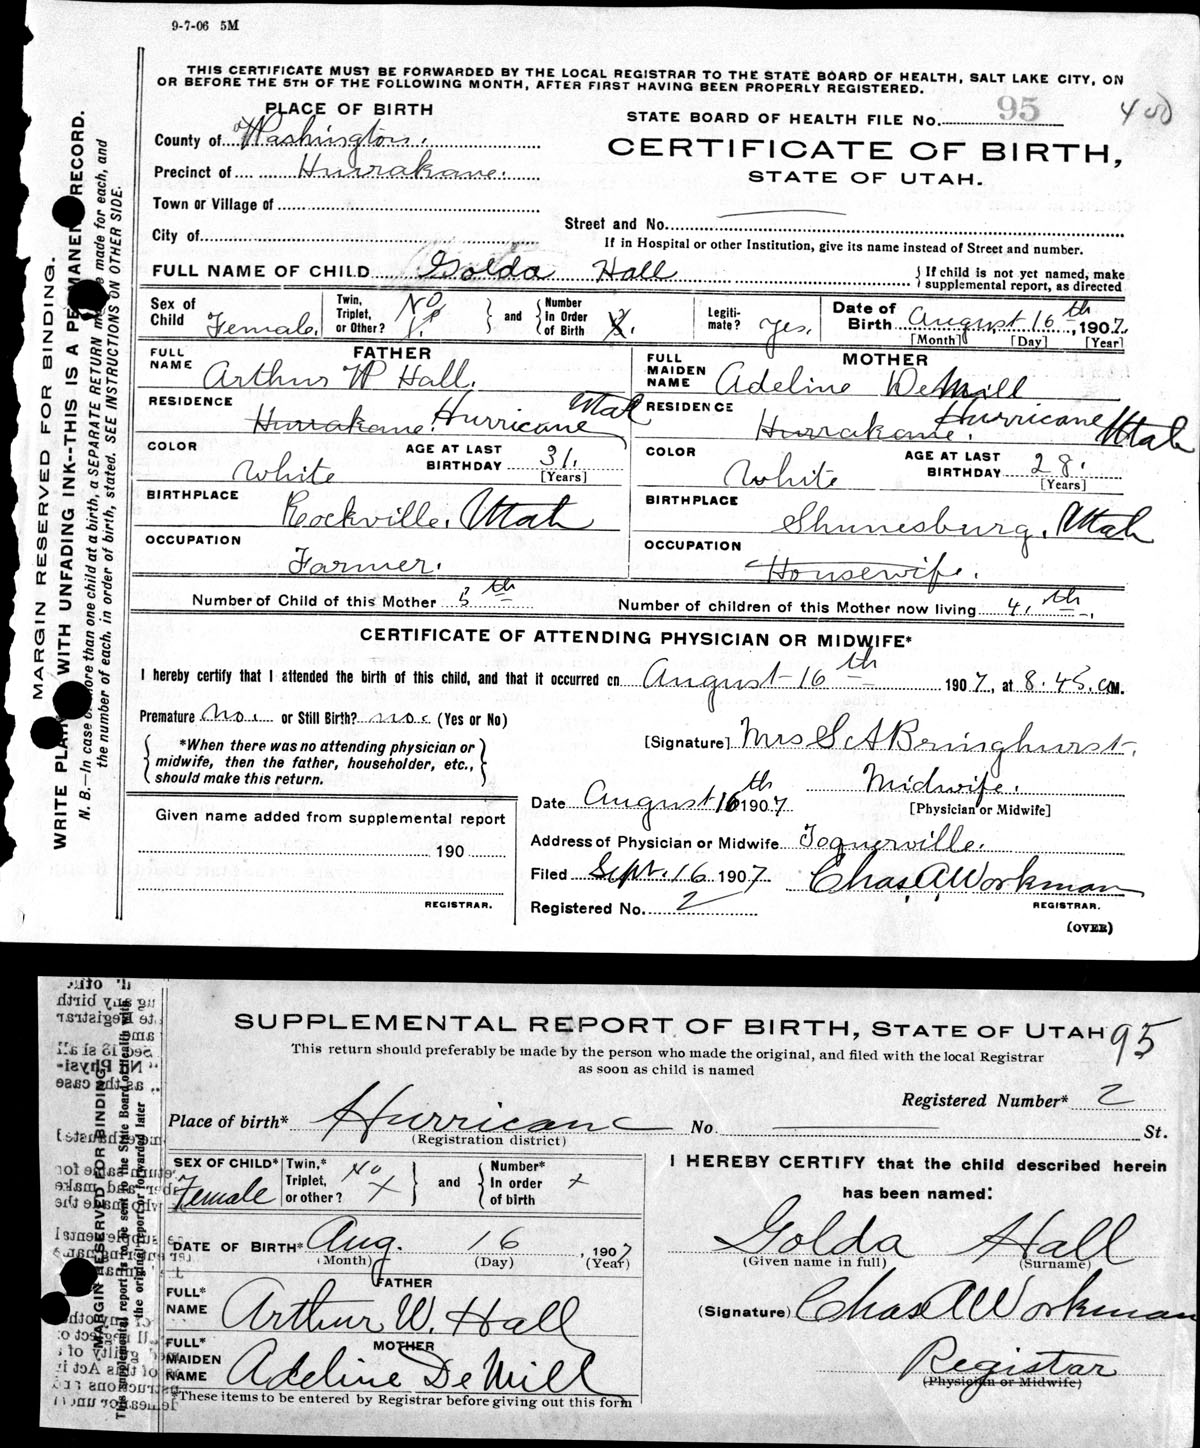 9-7-06 5M
THIS CERTIFICATE MUST BE FORWARDED BY THE LOCAL REGISTRAR TO THE STATE BOARD OF HEALTH, SALT LAKE CITY, ON
OR BEFORE THE 5TH OF THE FOLLOWING MONTH, AFTER FIRST HAVING BEEN PROPERLY REGISTERED.
PLACE OF BIRTH
STATE BOARD OF HEALTH FILE No. 95
400
County of Washington.
CERTIFICATE OF BIRTH,
Precinct of Hurrakane.
STATE OF UTAH.
Town or Village of
Street and No.
City of
If in Hospital or other Institution, give its name instead of Street and number.
FULL NAME OF CHILD Golda Hall
If child is not yet named, make
supplemental report, as directed
Sex of Child Female.
Twin, Triplet, or Other? No
and
Number In Order of Birth
Legiti-mate? yes.
Date of Birth August 16th, 1907.
[Month] [Day] [Year]
FATHER
FULL NAME Arthur W Hall.
RESIDENCE Hurrakane. Hurricane Utah
COLOR White
AGE AT LAST BIRTHDAY 31.
[Years]
BIRTHPLACE Rockville, Utah
OCCUPATION Farmer.
MOTHER
FULL MAIDEN NAME Adeline DeMill
RESIDENCE Hurrakane. Hurricane Utah
COLOR White
AGE AT LAST BIRTHDAY 28.
[Years]
BIRTHPLACE Shunesburg, Utah
OCCUPATION Housewife.
Number of Child of this Mother 5th
Number of children of this Mother now living 4th
CERTIFICATE OF ATTENDING PHYSICIAN OR MIDWIFE*
I hereby certify that I attended the birth of this child, and that it occurred on August 16th 1907, at 8.45. a.M.
Premature no. or Still Birth? no. (Yes or No)
*When there was no attending physician or
midwife, then the father, householder, etc.,
should make this return.
[Signature] Mrs S A Beringhurst.
Midwife.
[Physician or Midwife]
Date August 16th 1907
Given name added from supplemental report
190
REGISTRAR.
Address of Physician or Midwife Toquerville.
Filed Sept. 16 1907 Chas A Workman
REGISTRAR.
Registered No. 2
(OVER)
MARGIN RESERVED FOR BINDING.
WRITE PLAINLY WITH UNFADING INK--THIS IS A PERMANENT RECORD.
N. B.—In case of more than one child at a birth, a SEPARATE RETURN must be made for each, and
the number of each, in order of birth, stated. SEE INSTRUCTIONS ON OTHER SIDE.
SUPPLEMENTAL REPORT OF BIRTH, STATE OF UTAH 95
This return should preferably be made by the person who made the original, and filed with the local Registrar
as soon as child is named
Registered Number* 2
Place of birth* Hurricane No. St.
(Registration district)
SEX OF CHILD* Female
Twin,* Triplet, or other? No X
and
Number* In order of birth X
I HEREBY CERTIFY that the child described herein
has been named:
DATE OF BIRTH* Aug. 16, 1907
(Month) (Day) (Year)
Golda Hall
(Given name in full) (Surname)
FATHER
FULL* NAME Arthur W. Hall
(Signature) Chas A Workman
MOTHER
FULL* MAIDEN NAME Adeline DeMill
Registar
(Physician or Midwife)
*These items to be entered by Registrar before giving out this form
MARGIN RESERVED FOR BINDING
This supplemental report is to be sent to the State Board of Health with
the original report or forwarded later